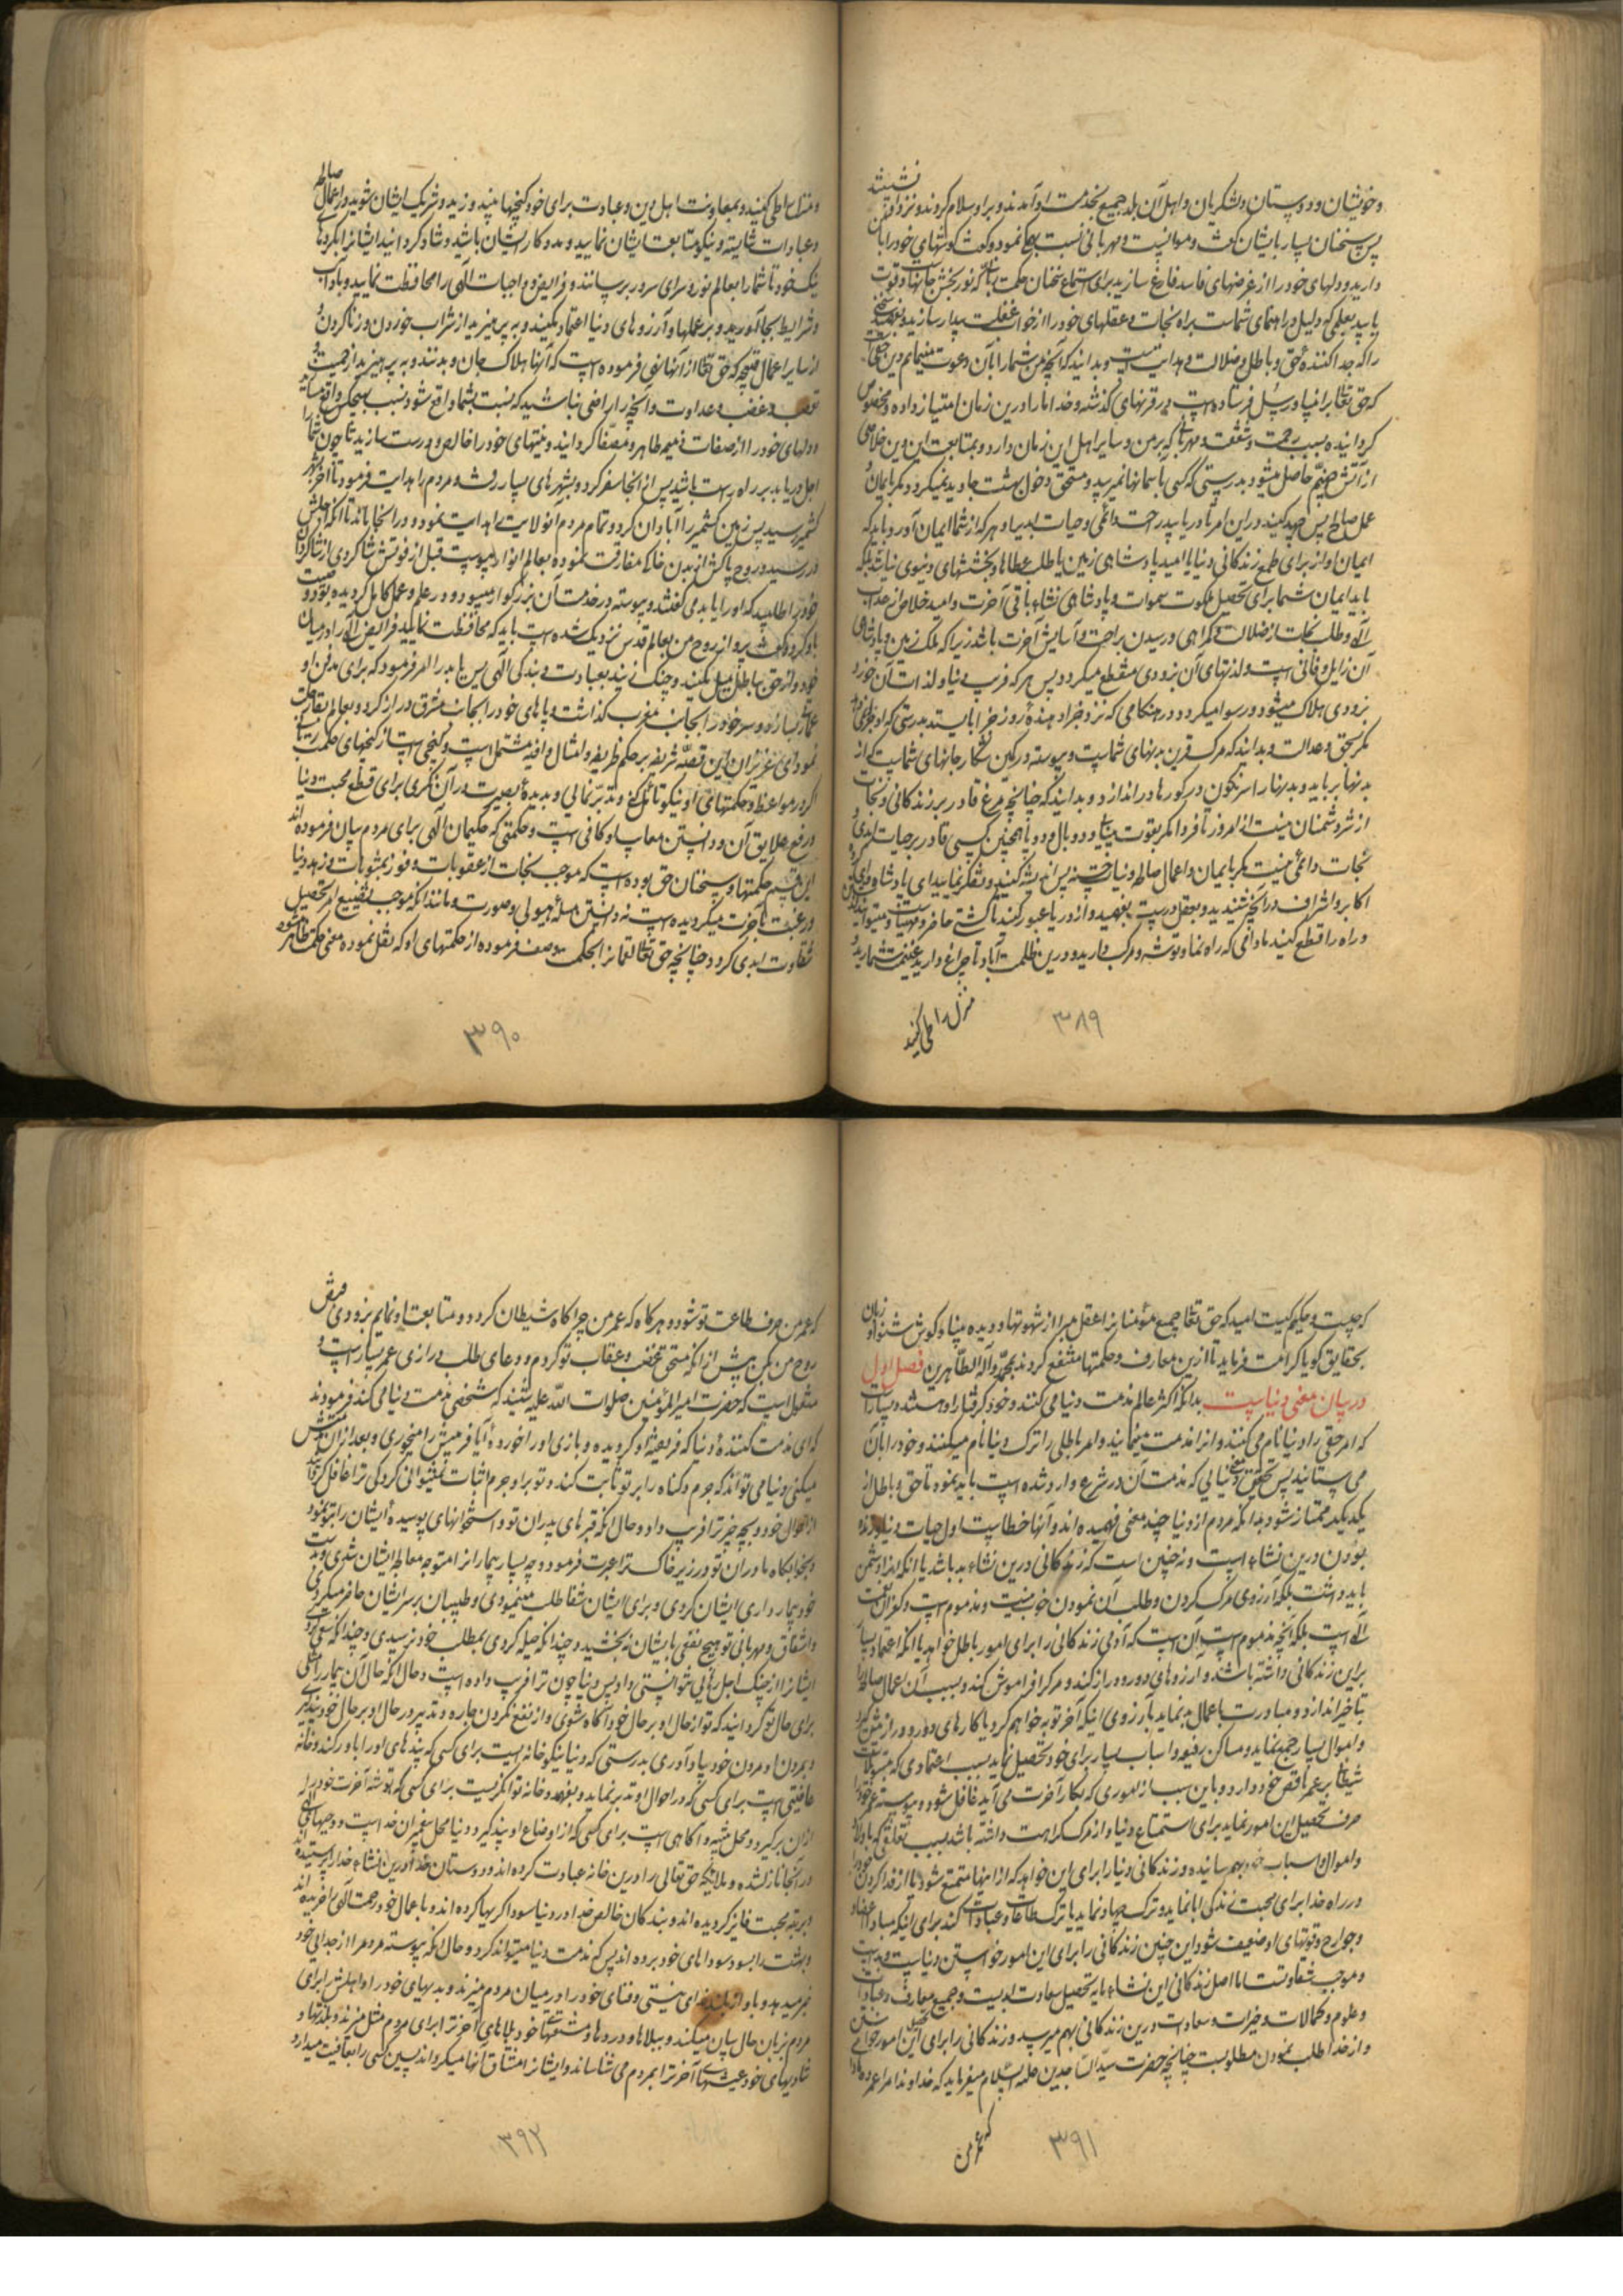 و خویشان و دوستان و لشکریان و اهل آن بلد جمیع بخدمت او آمدند و بر او سلام کردند و نزد او نشستند
پس سخنان بسیار با ایشان گفت و موانست و مهربانی نسبت بهمه نمود و گفت گوشهای خود را با من
دارید و دلهای خود را از غرضهای فاسد فارغ سازید برای استماع سخنان حکمت ربانی که نوربخش جانهاست و قوت
یابید بعلمی که دلیل و راهنمای شماست براه نجات و عقلهای خود را از خواب غفلت بیدار سازید و بفهمید سخنی
را که جدا کنندهٔ حق و باطل و ضلالت و هدایت است و بدانید که آنچه من شما را بآن دعوت مینمایم دین حقی است
که حق تعالی بر انبیا و رسل فرستاده است در قرنهای گذشته و خدا ما را درین زمان امتیاز داده و مخصوص
گردانیده بسبب رحمت و شفقت و مهربانی که بر من و سایر اهل این زمان دارد و بمتابعت این دین خلاصی
از آتش جهنم حاصل میشود بدرستی که کسی بآسمانها نمیرسد و مستحق دخول بهشت جاوید نمیگردد مگر بایمان و
عمل صالح پس جهد کنید در این امر تا دریابید راحت دائمی و حیات ابدی را و هر که از شما ایمان آورد باید که
ایمان او از برای طمع زندگانی دنیا یا امید پادشاهی زمین یا طلب عطاها و بخششهای دنیوی نباشد بلکه
باید ایمان شما برای تحصیل ملکوت سموات و پادشاهی نشاء باقی آخرت و امید خلاص از عذاب
الهی و طلب نجات از ضلالت و گمراهی و رسیدن براحت و آسایش آخرت باشد زیرا که ملک زمین و پادشاهی
آن زایل و فانی است و لذتهای آن بزودی منقطع میگردد پس هر که فریب دنیا و لذات آن خورد
بزودی هلاک میشود و رسوا میگردد در هنگامی که نزد جزا دهندهٔ روز جزا بایستد بدرستی که او جزا نمی‌دهد
مگر بحق و عدالت و بدانید که مرگ قرین بدنهای شماست و پیوسته در کمین شکار جانهای شماست که از
بدنها برباید و بدنها را سرنگون در گورها در اندازد و بدانید که چنانچه مرغ قادر بر زندگانی و نجات
از شر دشمنان نیست از امروز تا فردا مگر بقوت بینایی و دو بال و دو پا همچنین کسی قادر بر حیات ابدی و
نجات دائمی نیست مگر بایمان و اعمال صالحه و نیات حسنه پس اندیشه کنید و تفکر نمایید ای پادشاه و ای گروه
اکابر و اشراف در آنچه شنیدید و بعقل درست بفهمید و از دریا عبور کنید تا کشتی حاضر و مهیاست و میتوانید
و راه را قطع کنید مادامی که راه نما و توشه و مرکب دارید و درین ظلمت آباد تا چراغ دارید غنیمت شمارید و
منزل را طی کنید
۳۸۹
و منزل را طی کنید و بمعاونت اهل دین و عبادت برای خود گنجها بیندوزید و شریک ایشان شوید در اعمال صالحه
و عبادات شایسته و نیکو متابعت ایشان نمایید و مددکار ایشان باشید و شاد گردانید ایشانرا بکردهای
نیک خود تا شما را بعالم نور و سرای سرور برسانند و فرایض و واجبات الهی را محافظت نمایید و بآداب
و شرایط بجا آورید و بر عملها و آرزوهای دنیا اعتماد مکنید و بپرهیزید از شراب خوردن و زنا کردن و
از سایر اعمال قبیحه که حق تعالی از آنها نهی فرموده است که آنها هلاک جان و بدنند و بپرهیزید از حمیت و
تعصب و غضب و عداوت و آنچه را راضی نباشید که نسبت بشما واقع شود نسبت بهیچکس واقع مسازید
و دلهای خود را از صفات ذمیمه طاهر و مصفا گردانید و نیتهای خود را خالص و درست سازید تا چون شما را
اجل دریابد بر راه راست باشید پس از آنجا سفر کرده و بشهرهای بسیار رفت و مردم را هدایت فرمود تا آخر بشهر
کشمیر رسید پس زمین کشمیر را آبادان کرد و تمام مردم آن ولایت را هدایت نمود و در آنجا ماند تا آنکه اجلش
در رسید و روح پاکش از بدن خاکی مفارقت نموده بعالم انوار پیوست قبل از فوتش شاگردی از شاگردان
خود را طلبید که او را یابد می‌گفتند و پیوسته در خدمت آن بزرگوار میبود و در علم و عمل کامل گردیده بود و وصیت
باو کرد و گفت پرواز روح من بعالم قدس نزدیک شده است باید که محافظت نمایید فرائض الهی را و در میان
خود و از حق بباطل میل مکنید و چنگ زنید بعبادت و بندگی الهی پس یابد را امر فرمود که برای مدفن او
عمارتی بسازد و سر خود را بجانب مغرب گذاشت و پاهای خود را بجانب مشرق دراز کرد و بعالم بقا رحلت
نمود ای عزیزان این قصهٔ شریفه بر حکم ظریفه و امثال وافیه مشتمل است و گنجی است از گنجهای حکمت ربانی
اگر در مواعظ و حکمتهای او نیکو تأمل کنی و تدبر نمایی و بدیدهٔ بصیرت در آن نگری برای قطع محبت دنیا
و رفع علایق آن و دانستن معایب او کافی است و حکمتی که حکیمان الهی برای مردم بیان فرموده‌اند
این قسم حکمتها و سخنان حق بوده است که موجب نجات از عقوبات و فوز بمثوبات و زهد در دنیا
و رغبت بآخرت میگردیده است نه دانستن مسلهٔ هیولی و صورت و مانند آنکه موجب تضییع عمر و تحصیل
شقاوت ابدی گردد چنانچه حق تعالی لقمانرا بحکمت وصف فرموده از حکمتهای او که نقل نموده معنی حکمت ظاهر میشود
۳۹۰
که چیست و حکیم کیست امید که حق تعالی جمیع مؤمنانرا عقل مبرا از شهوتها و دیده بینا و گوش شنوا و زبان
بحقایق گویا کرامت فرماید تا ازین معارف و حکمتها منتفع گردند بمحمد و آله الطاهرین فصل اول
در بیان معنی دنیاست بدانکه اکثر عالم مذمت دنیا می‌کنند و خود گرفتار او هستند و بسیار است
که امر حقی را دنیا نام می‌کنند و آنرا مذمت مینمایند و امر باطلی را ترک دنیا نام میکنند و خود را بآن
می‌ستایند پس تحقیق معنی دنیایی که مذمت آن در شرع وارد شده است باید نمود تا حق و باطل از
یکدیگر ممتاز شود بدانکه مردم از دنیا چند معنی فهمیده‌اند و آنها خطاست اول حیات دنیا و زنده
بودن درین نشاء است و نه چنین است که زندگانی درین نشاء بد باشد یا آنکه اینرا دشمن
باید داشت بلکه آرزوی مرگ کردن و طلب آن نمودن خوب نیست و مذموم است و کفران نعمت
الهی است بلکه آنچه مذموم است آن است که آدمی زندگانی را برای امور باطل خواهد یا آنکه اعتماد بسیار
برین زندگانی داشته باشد و آرزوهای دور و دراز کند و مرگ را فراموش کند و بسبب آن اعمال صالحه را
تأخیر اندازد و مبادرت باعمال بد نماید بآرزوی اینکه آخر توبه خواهم کرد یا کارهای دور و دراز پیش گیرد
و اموال بسیار جمع نماید و مساکن رفیعه و اسباب بسیار برای خود تحصیل نماید بسبب اعتمادی که بتسویلات
شیطانی بر عمر ناقص خود دارد و باین سبب از اموری که بکار آخرت می‌آید غافل شود و پیوسته عمر خود را
صرف تحصیل این امور نماید برای استمتاع دنیا و از مرگ کراهت داشته باشد بسبب تعلقی که باولاد
و اموال و اسباب خود بهم رسانیده و زندگانی دنیا را برای این خواهد که از اینها متمتع شود یا از فدا کردن خود را
در راه خدا برای محبت زندگی ابا نماید و ترک جهاد نماید یا ترک طاعات و عبادات کند برای اینکه مبادا اعضا
و جوارح و قوتهای او ضعیف شود این چنین زندگانی را برای این امور خواستن دنیاست و بد است
و موجب شقاوتست اما اصل زندگانی این نشاء مایهٔ تحصیل سعادت ابدیست و جمیع معارف و عبادات
و علوم و کمالات و خیرات و سعادات درین زندگانی بهم میرسد و زندگانی را برای تحصیل این امور خواستن
و از خدا طلب نمودن مطلوبست چنانچه حضرت سید الساجدین علیه السلام میفرماید که خداوندا مرا عمر ده مادام
که عمر من
۳۹۱
که عمر من صرف طاعت تو شود و هرگاه که عمر من چراگاه شیطان گردد و متابعت او نمایم بزودی قبض
روح من بکن پیش از آنکه مستحق غضب و عقاب تو گردم و دعای طلب درازی عمر بسیار است و
منقول است که حضرت امیرالمؤمنین صلوات الله علیه شنید که شخصی مذمت دنیا می‌کند فرمودند
که ای مذمت کنندهٔ دنیا که فریفتهٔ او گردیده و بازی او را خوردهٔ آیا فریبش را میخوری و بعد از آن مذمتش
میکنی و دنیا می‌تواند که جرم و گناه را بر تو ثابت کند و تو بر او جرم اثبات نمیتوانی کرد کی ترا غافل گردانید
از احوال خود و بچه چیز ترا فریب داد و حال آنکه قبرهای پدران تو و استخوانهای پوسیدهٔ ایشان را بتو نمود
و بخوابگاه مادران تو در زیر خاک ترا عبرت فرمود و چه بسیار بیمار را تو متوجه معالجهٔ ایشان شدی و بدست
خود بیمارداری ایشان کردی و برای ایشان شفا طلب مینمودی و طبیبان بر سر ایشان حاضر میکردی
و اشفاق و مهربانی تو هیچ نفعی بایشان نبخشید و چندانکه حیله کردی بمطلب خود نرسیدی و چندانکه سعی کردی
ایشانرا از چنگ اجل رهایی نتوانستی داد پس دنیا چون ترا فریب داده است و حال آنکه حال آن بیمار را مثلی
برای حال تو گردانید که تو از حال او بر حال خود آگاه شوی و از نفع نکردن چاره و تدبیر در حال او بر حال خود پند گیری
و بمردن او مردن خود بیاد آوری بدرستی که دنیا نیکو خانه ایست برای کسی که پندهای او را باور کند و خانه
عافیتی است برای کسی که در احوال او تدبر نماید و بفهمد و خانه توانگریست برای کسی که توشه آخرت خود را
از آن برگیرد و محل تنبیه و آگاهی است برای کسی که از اوضاع او پند گیرد و دنیا محل پیغمبران خداست و وحیهای الهی
در آنجا نازل شده و ملائکه حق تعالی را درین خانه عبادت کرده‌اند و دوستان خدا درین نشاء خدا را پرستیده‌اند
و برتبه محبت فایز گردیده‌اند و بندگان خالص خدا در دنیا سوداگریها کرده‌اند و با عمال خود رحمت الهی خریده‌اند
و بهشت را بسود سوداهای خود برده‌اند پس که مذمت دنیا میتواند کرد و حال آنکه پیوسته مردم را از جدایی خود
خبر میدهد و بآواز بلند ندای نیستی و فنای خود را در میان مردم میزند و بدیهای خود را و اهلش برای
مردم بزبان حال بیان میکند و ببلاها و دردها و مشقتهای خود بلاهای آخرت را برای مردم مثل میزند و بلذتها و
شادیهای خود عیشهای آخرت را بمردم می‌شناساند و ایشانرا مشتاق آنها میگرداند پسین کسی را بعافیت میدارد
۳۹۲